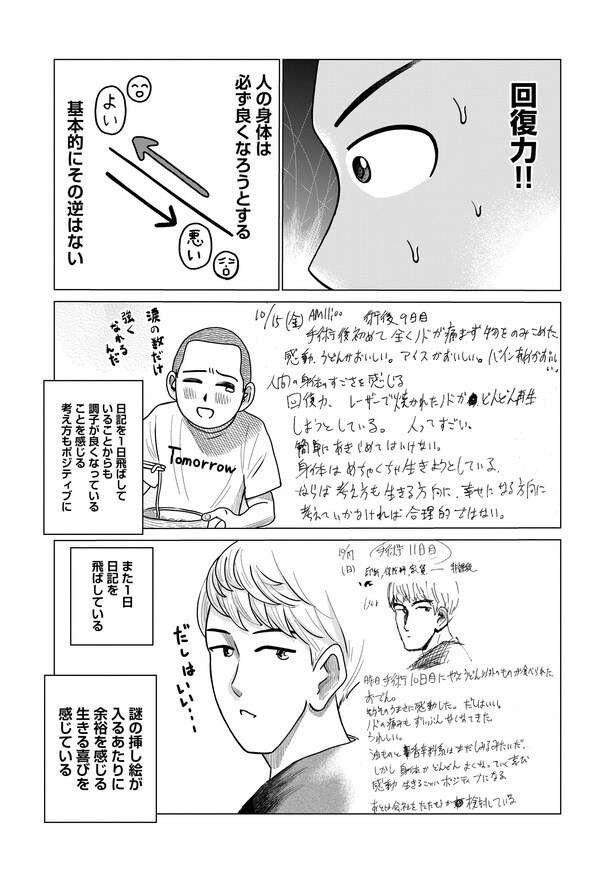 回復力!!
人の身体は
必ず良くなろうとする
よい
悪い
基本的にその逆はない
10/15(金)
AM11:00
術後9日目
手術後初めて全くノドが痛まず物をのみこめた
感動、うどんがおいしい。アイスがおいしい。
人間の身体のすごさを感じる
回復力、レーザーで焼かれたノドがどんどん再生
しようとしている。人ってすごい。
簡単にあきらめてはいけない。
身体はめちゃくちゃ生きようとしている、
ならば考え方も生きる方向に、幸せになる方向に
考えていかなければ合理的ではない。
涙の数だけ
強く
なれるんだ
Tomorrow
日記を1日飛ばして
いることからも
調子が良くなっている
ことを感じる
考え方もポジティブに
手術11日目
(日)
昨日手術10日目にやっとうどん以外のものが食べられた
おでん。
感動した。だしはいい。
ノドの痛みもずいぶんなくなってきた。
うれしい。
油ものと香辛料系はまだしみるみたいだ。
しかし身体がどんどんよくなっていく喜び
感動 生きることにポジティブになる
検討している
また1日
日記を
飛ばしている
だしはいい…
謎の挿し絵が
入るあたりに
余裕を感じる
生きる喜びを
感じている